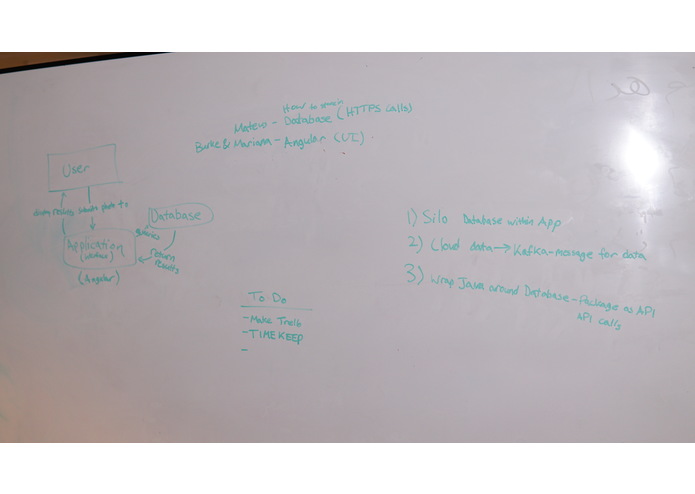 How to search
Mateus - Database (HTTPS calls)
Burke & Mariana - Angular (UI)
User
results submits photo to
Database
queries
Application
(website)
return
results
(Angular)
1) Silo Database within App
2) Cloud data → Kafka-message for data
3) Wrap Java around Database - Package as API
API calls
To Do
- Make Trello
- TIMEKEEP
-